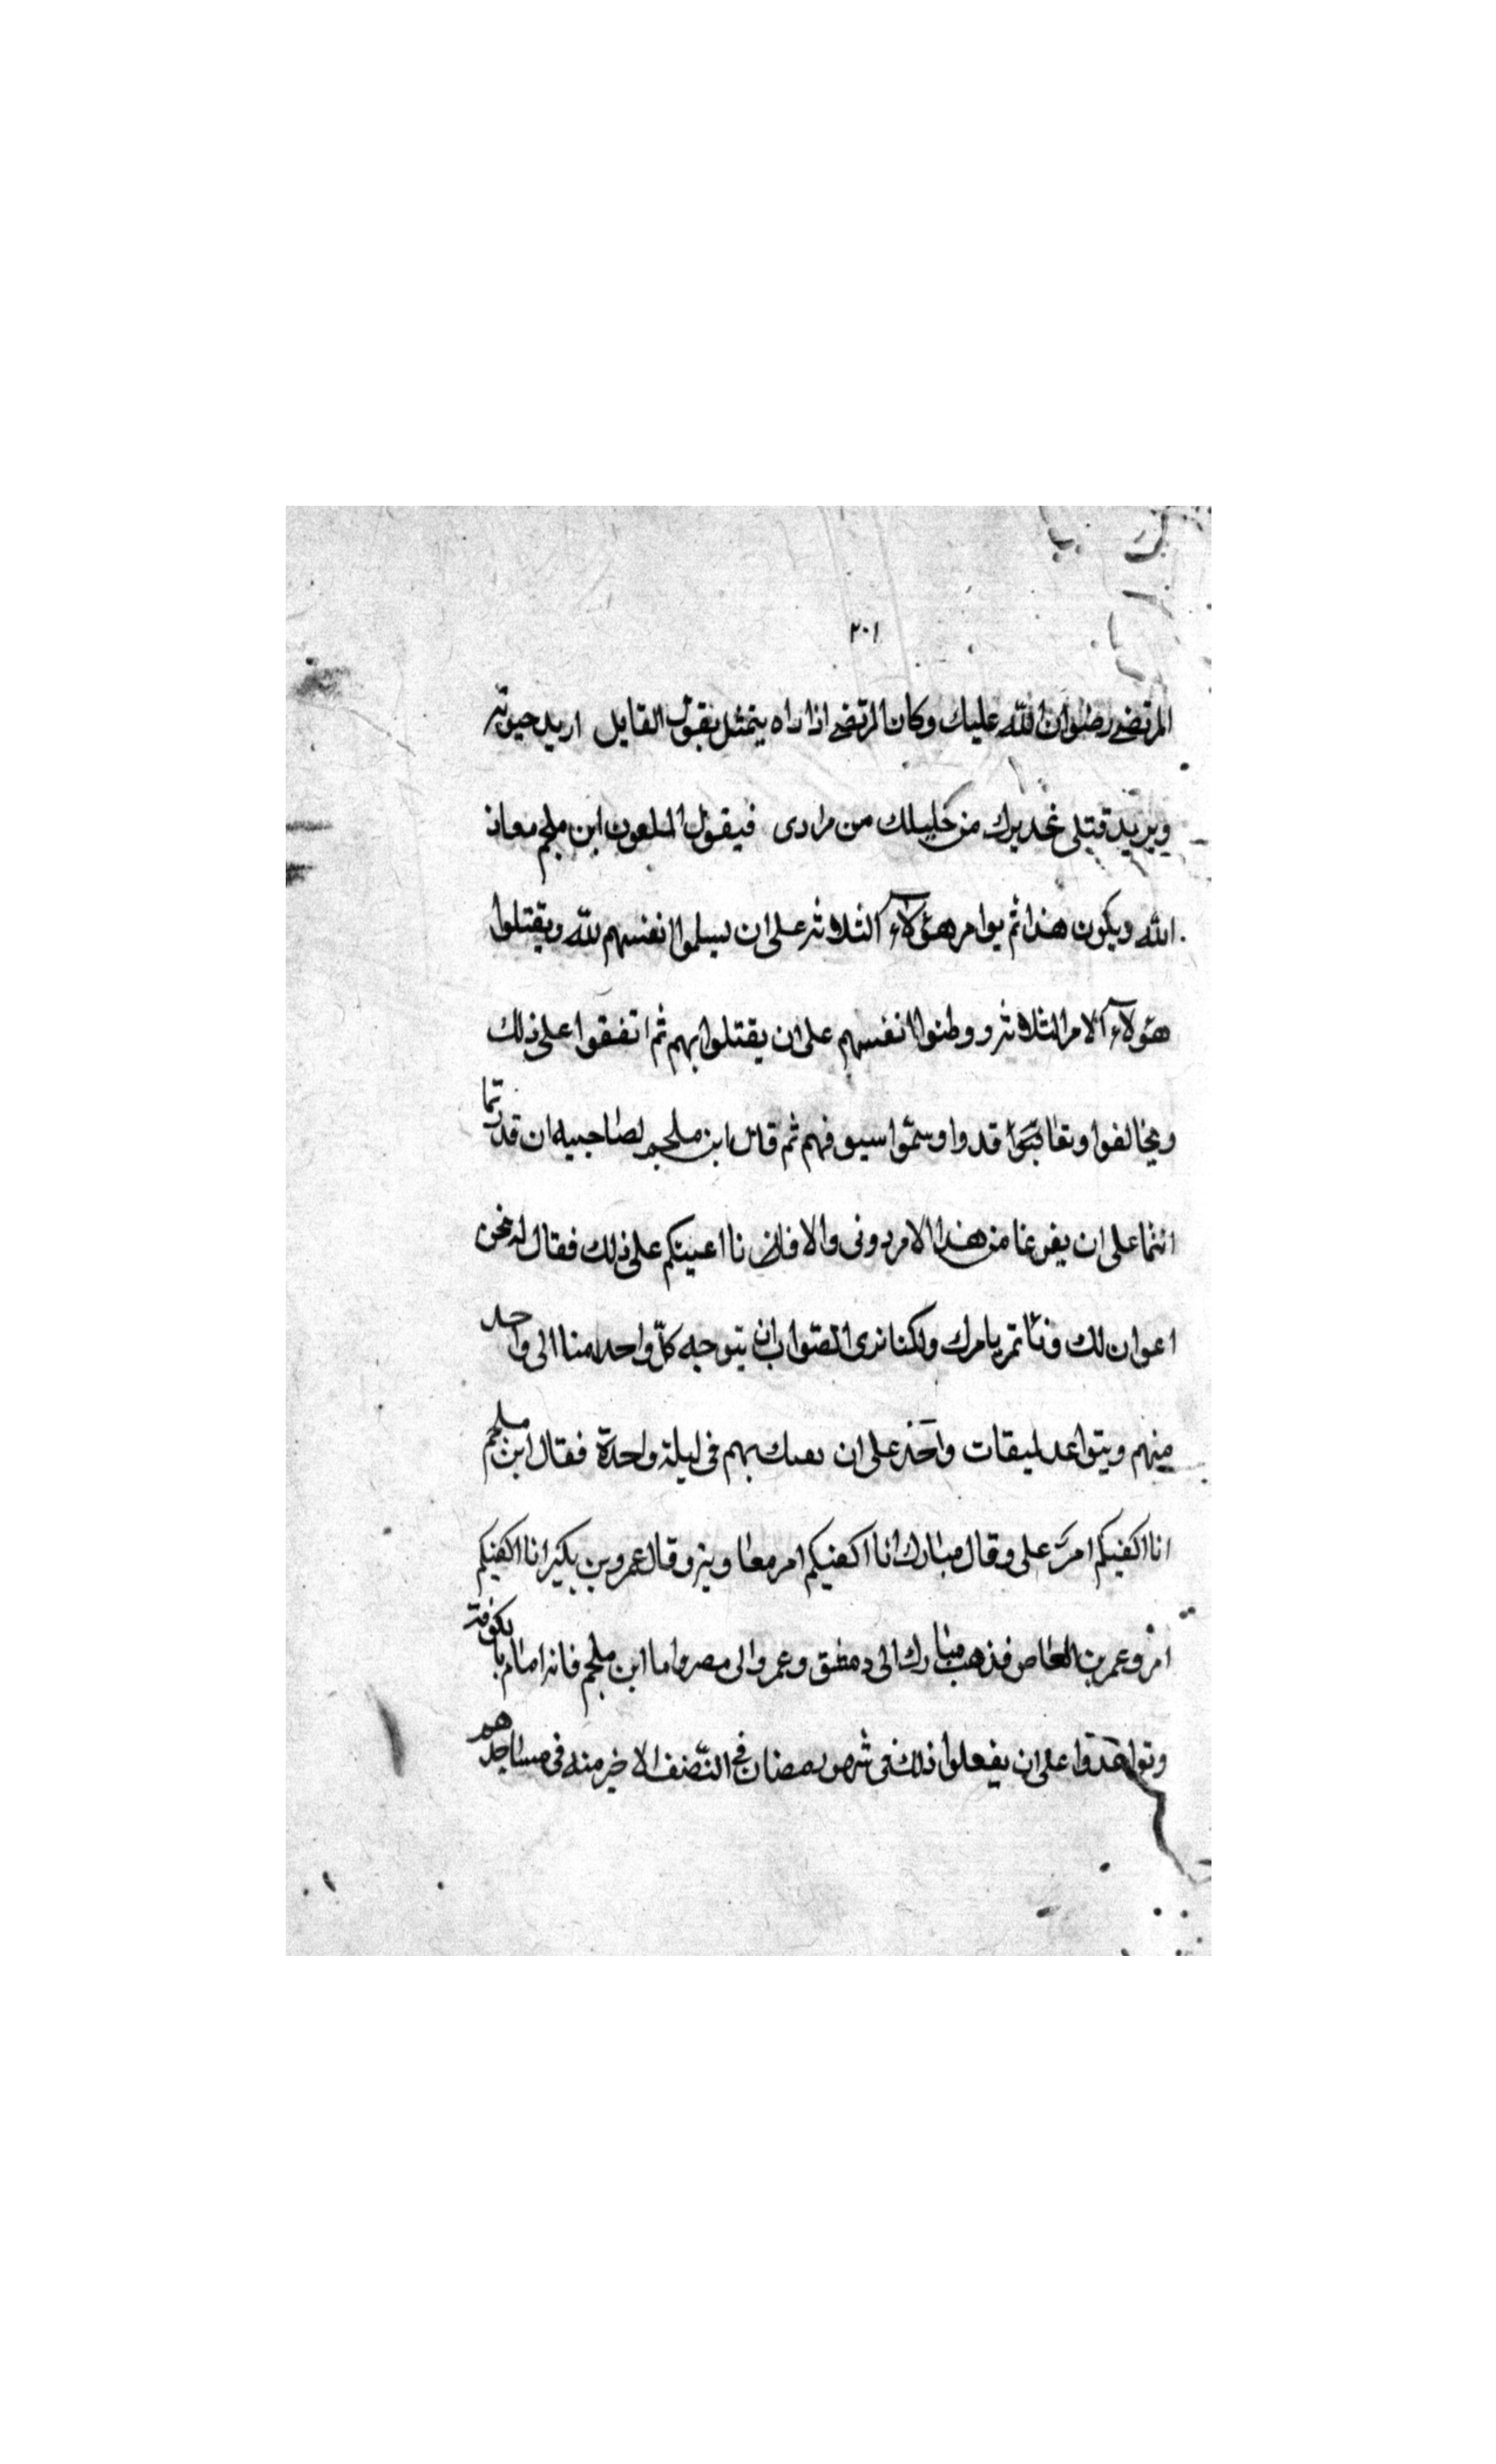 ٢٠١
المرتضى رضوان الله عليك وكان المرتضى اذا راه يتمثل بقول القايل اريد حيوته
ويريد قتلى غديرك من خليلك من مرادى فيقول الملعون ابن ملجم معاذ
الله ويكون هذا ثم يوامر هؤلاء الثلاثه على ان يسلموا انفسهم لله ويقتلوا
هؤلاء الامر الثلاثه ووطنوا انفسهم على ان يقتلوا بهم ثم اتفقوا على ذلك
ويخالفوا قدوا وسمّوا سيوفهم ثم قال ابن ملجم لصاحبيه ان قدرتما
انتما على ان يفرغا من هذا الامر دونى والا فاننا اعينكم على ذلك فقال له نحن
اعوان لك وناتمر بامرك ولكنا نرى الصّواب ان يتوجه كلّ واحد منا الى واحد
منهم ويتواعد لميقات واحد على ان بهم فى ليلة واحدة فقال ابن ملجم
انا اكفيكم امر على وقال مبارك انا اكفيكم امر معاويه وقال عمرو بن بكير انا اكفيكم
امر وعمر بن العاص فذهب مبارك الى دمشق وعمر والى مصر واما ابن ملجم فانه اقام بالكوفة
وتواعدوا على ان يفعلوا ذلك فى شهر رمضان فى النّصف الاخير منه فى مساجدهم